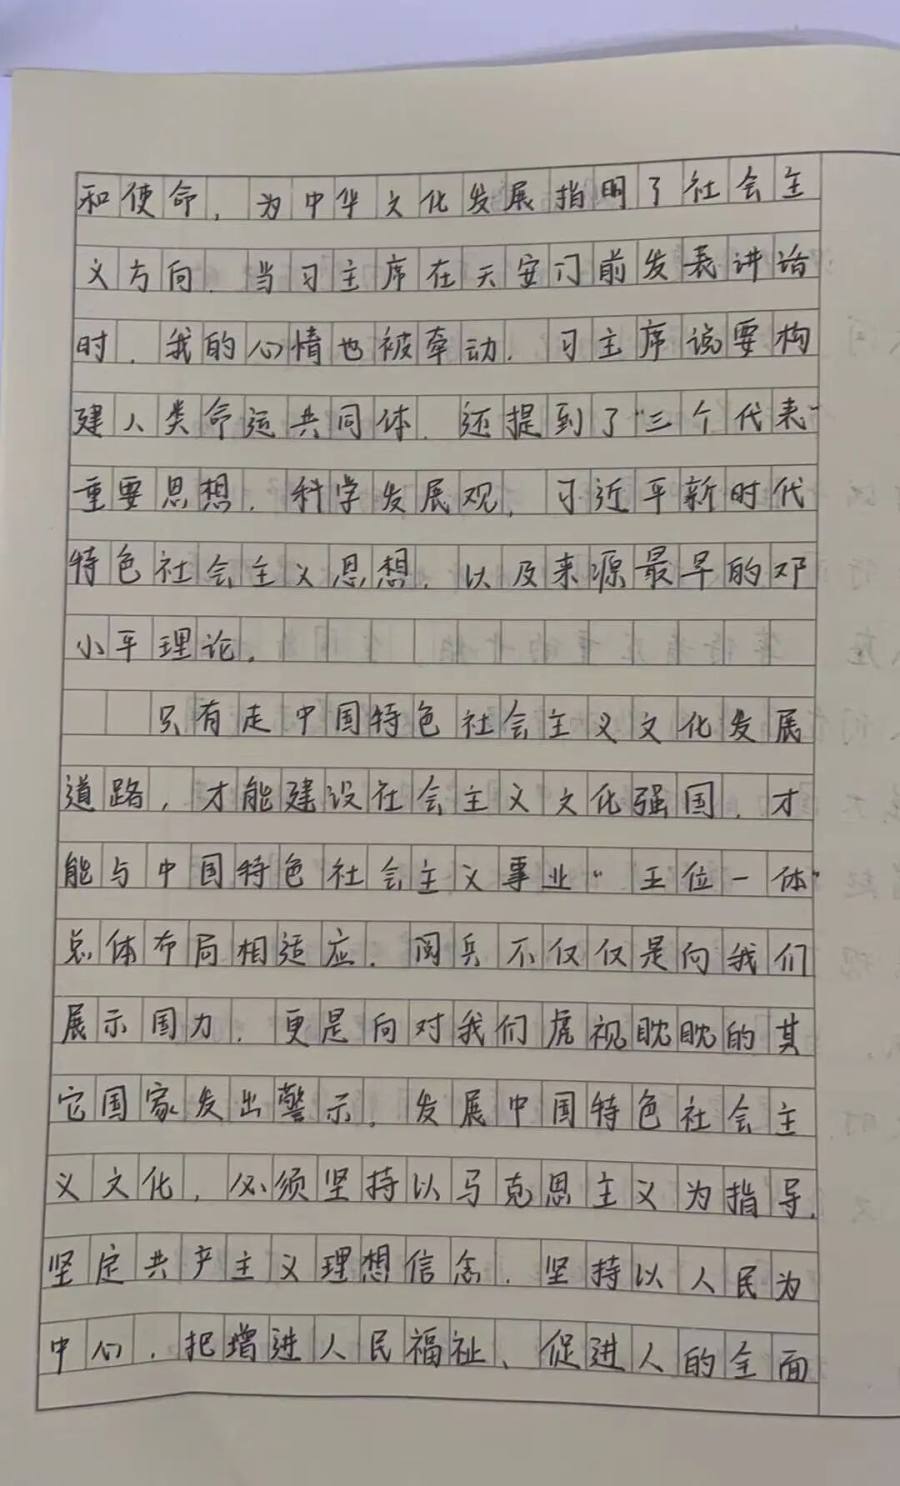 和使命，为中华文化发展指明了社会主
义方向．当习主席在天安门前发表讲话
时．我的心情也被牵动．习主席说要构
建人类命运共同体．还提到了“三个代表”
重要思想．科学发展观，习近平新时代
特色社会主义思想．以及来源最早的邓
小平理论．
只有走中国特色社会主义文化发展
道路，才能建设社会主义文化强国．才
能与中国特色社会主义事业“五位一体”
总体布局相适应．阅兵不仅仅是向我们
展示国力．更是向对我们虎视眈眈的其
它国家发出警示．发展中国特色社会主
义文化，必须坚持以马克思主义为指导．
坚定共产主义理想信念．坚持以人民为
中心．把增进人民福祉、促进人的全面